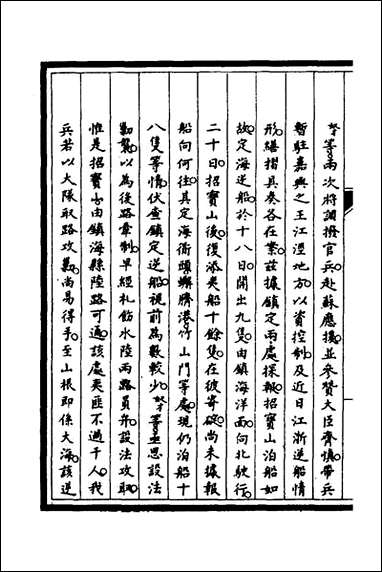 奴才等兩次將調撥官兵赴蘇應援並參贊大臣齊慎帶兵
暫駐嘉興之王江涇地方以資控制及近日江浙逆船情
形繕摺具奏各在案茲據鎮定兩處探報招寶山泊船如
故定海逆船於十八日開出九隻由鎮海洋面向北駛行
二十日招寶山後復添夷船十餘隻在彼寄碇尚未據報
船向何往其定海衜頭蠏臍港竹山門等處現仍泊船十
八隻等情伏查鎮定逆船視前為數較少奴才等亟思設法
勦襲以為後路牽制早經札飭水陸兩路員弁設法攻取
惟是招寶山由鎮海縣陸路可通該處夷匪不過千人我
兵若以大隊取路攻襲尚易得手至山根即係大海該逆